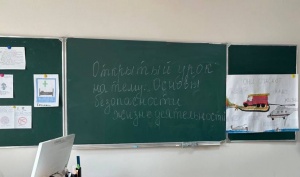 Открытый урок
на тему: „Основы
безопасности
жизнедеятельности